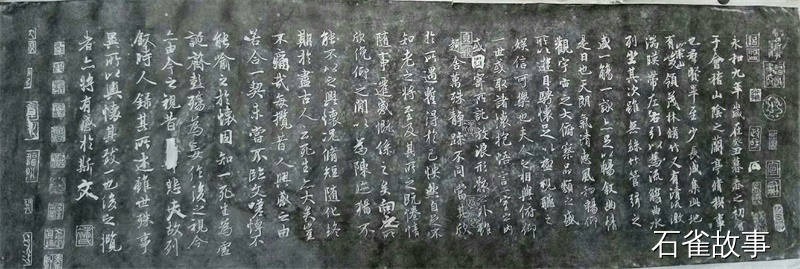 永和九年歲在癸丑暮春之初
于會稽山陰之蘭亭脩稧事
也羣賢畢至少長咸集此地
有崇山峻領茂林脩竹又有清流激
湍暎帶左右引以為流觴曲水
列坐其次雖無絲竹管弦之
盛一觴一詠亦足以暢叙幽情
是日也天朗氣清惠風和暢仰
觀宇宙之大俯察品類之盛
所以遊目騁懷足以極視聽之
娛信可樂也夫人之相與俯仰
一世或取諸懷抱悟言一室之內
或因寄所託放浪形骸之外雖
趣舍萬殊靜躁不同當其欣
於所遇暫得於己怏然自足不
知老之將至及其所之既惓情
隨事遷感慨係之矣向之所
欣俛仰之閒以為陳迹猶不
能不以之興懷況脩短隨化終
期於盡古人云死生亦大矣豈
不痛哉每攬昔人興感之由
若合一契未嘗不臨文嗟悼不
能喻之於懷固知一死生為虛
誕齊彭殤為妄作後之視今
亦由今之視昔悲夫故列
敘時人錄其所述雖世殊事
異所以興懷其致一也後之攬
者亦將有感於斯文
石雀故事